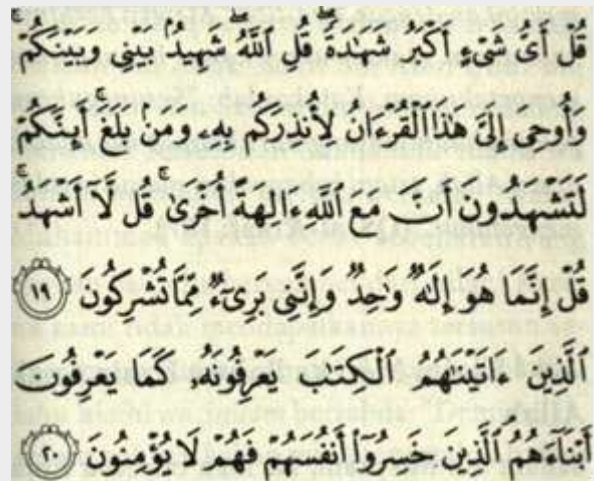 قُلْ أَىُّ شَىْءٍ أَكْبَرُ شَهَٰدَةً ۖ قُلِ ٱللَّهُ ۖ شَهِيدٌۢ بَيْنِى وَبَيْنَكُمْ ۚ
وَأُوحِىَ إِلَىَّ هَٰذَا ٱلْقُرْءَانُ لِأُنذِرَكُم بِهِۦ وَمَنۢ بَلَغَ ۚ أَئِنَّكُمْ
لَتَشْهَدُونَ أَنَّ مَعَ ٱللَّهِ ءَالِهَةً أُخْرَىٰ ۚ قُل لَّآ أَشْهَدُ ۚ
قُلْ إِنَّمَا هُوَ إِلَٰهٌ وَٰحِدٌ وَإِنَّنِى بَرِىٓءٌ مِّمَّا تُشْرِكُونَ ١٩
ٱلَّذِينَ ءَاتَيْنَٰهُمُ ٱلْكِتَٰبَ يَعْرِفُونَهُۥ كَمَا يَعْرِفُونَ
أَبْنَآءَهُمُ ٱلَّذِينَ خَسِرُوٓا۟ أَنفُسَهُمْ فَهُمْ لَا يُؤْمِنُونَ ٢٠